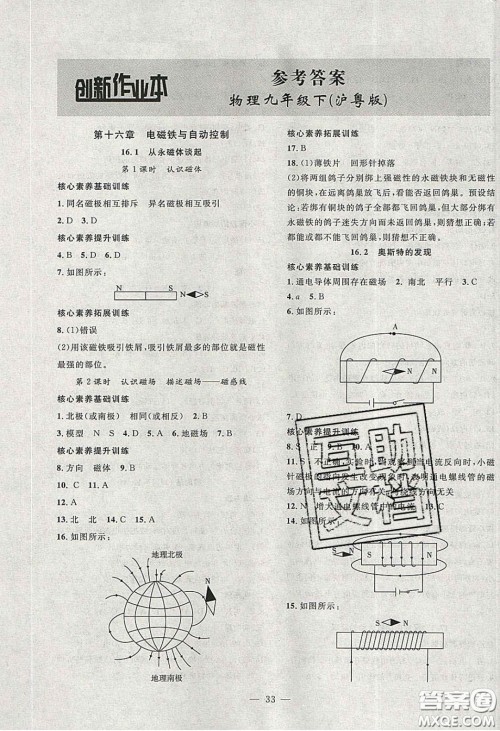 创新作业本
参考答案
物理九年级下(沪粤版)
第十六章 电磁铁与自动控制
16.1 从永磁体谈起
第1课时 认识磁体
核心素养基础训练
1. 同名磁极相互排斥 异名磁极相互吸引
2. D 3. D 4. A
核心素养提升训练
5. B 6. B
7. 如图所示:
N S
核心素养拓展训练
8. (1)错误
(2)用该磁铁吸引铁屑,吸引铁屑最多的部位就是磁性
最强的部位。
第2课时 认识磁场 描述磁场——磁感线
核心素养基础训练
1. 北极(或南极) 相同(或相反) 2. B
3. 模型 N S 4. D 5. A 6. 地磁场 7. B
核心素养提升训练
8. 方向 磁体 9. B 10. A 11. C
12.
13. 北 北 14. C 15. A
16. 如图所示:
地理北极
N
S
地理南极
核心素养拓展训练
17. B
18. (1)薄铁片 回形针掉落
(2)将两组鸽子分别绑上强磁性的永磁铁块和无磁性
的铜块,在远离鸽巢放飞后,看能否返回鸽巢。猜想:
若绑铜块的鸽子全部都能返回鸽巢,但大部分绑有
永磁铁的鸽子迷失方向而未返回鸽巢,则猜想正确;
否则,猜想不正确。
16.2 奥斯特的发现
核心素养基础训练
1. 通电导体周围存在磁场 2. 南北 平行 3. C
4. a 5. B
6. 如图所示:
A
N
7. D
核心素养提升训练
8. S 正
10. B
11.
12. N 增大通电螺线管中的电流 13. C
14. 如图所示:
S N S N
15. 如图所示:
S N
33
互助文档
答案圈
MXQE.COM